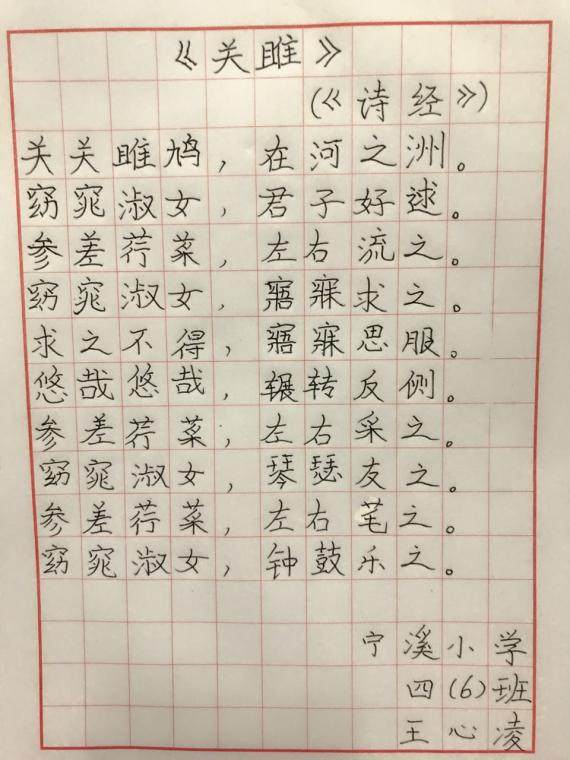 《关雎》
(《诗经》)
关关雎鸠，在河之洲。
窈窕淑女，君子好逑。
参差荇菜，左右流之。
窈窕淑女，寤寐求之。
求之不得，寤寐思服。
悠哉悠哉，辗转反侧。
参差荇菜，左右采之。
窈窕淑女，琴瑟友之。
参差荇菜，左右芼之。
窈窕淑女，钟鼓乐之。
宁溪小学
四(6)班
王心凌